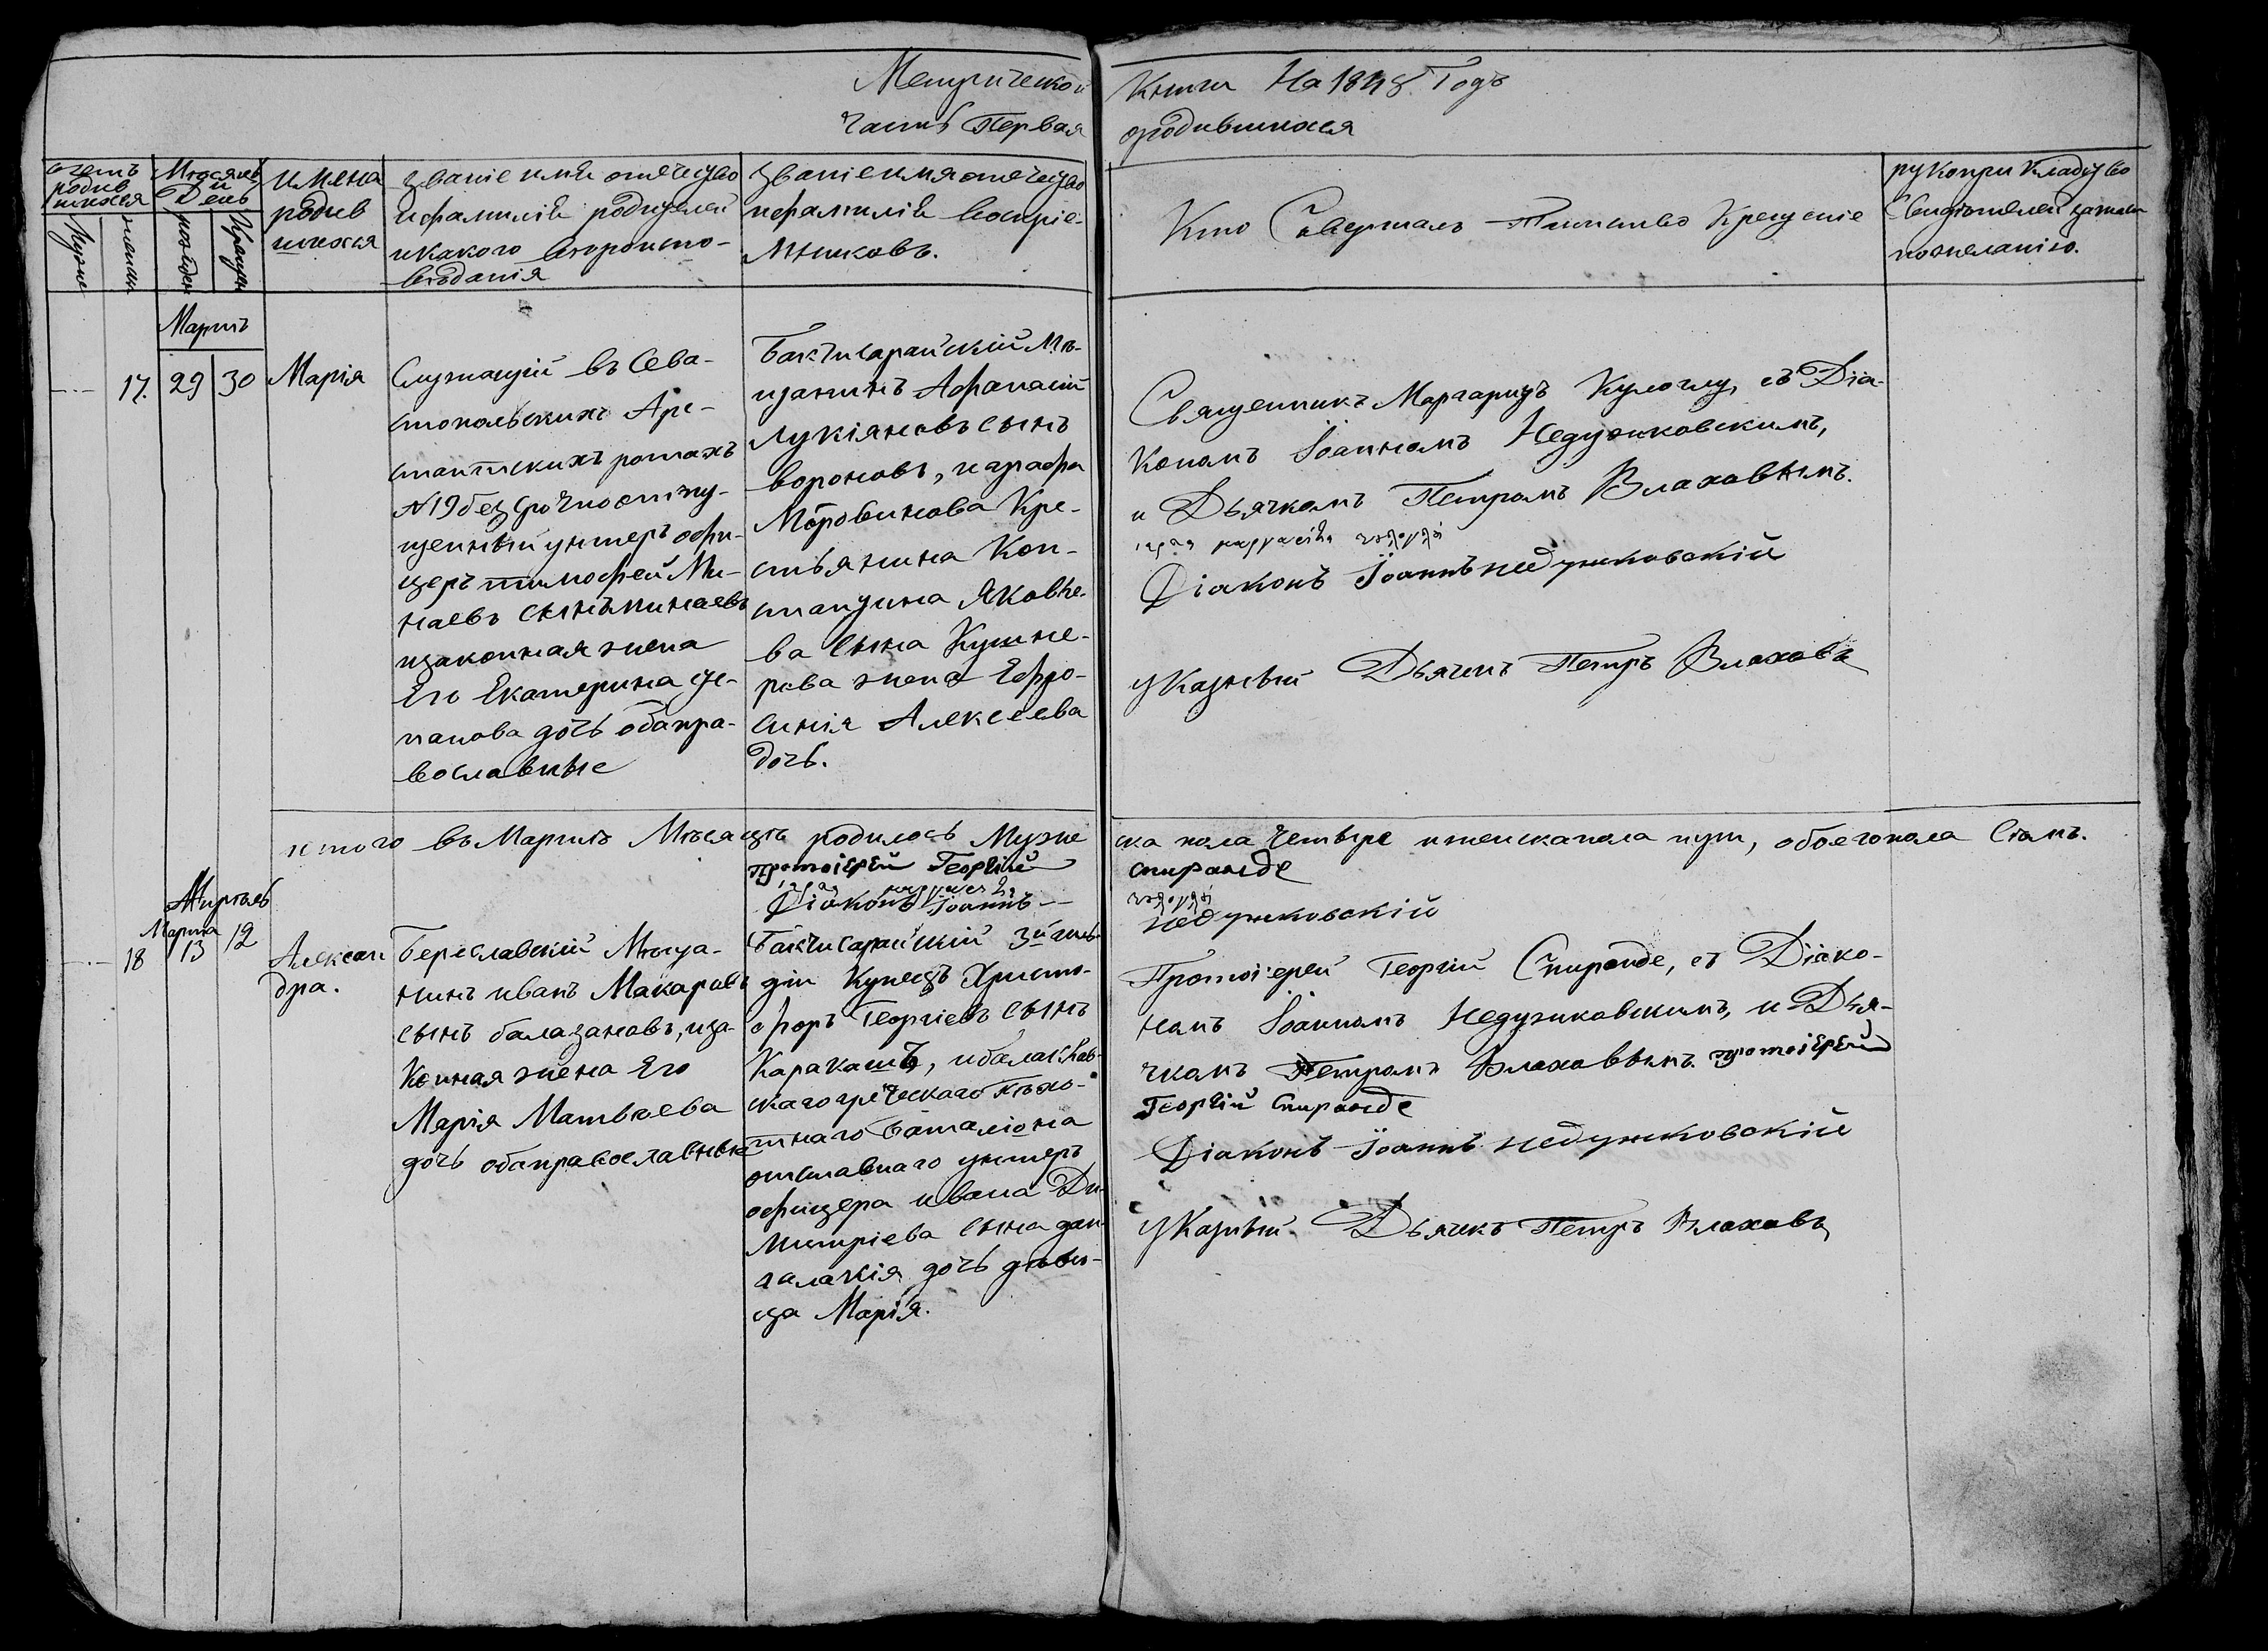 Метрической Книги На 1848. Годъ
Часть Первая ородившихся
счетъ родив шихся
Мѣсяцъ и День
имена родив шихся
званіе имя отечество и фамилія родителей икакого вѣроиспо- вѣданія
званіе имя отечество ифамилія воспріе- мниковъ.
Кто Совершалъ Таинство Крещеніе
рукоприкладство Свидѣтелей записи пожеланію.
Муже
женск
рожден
Крещен
Мартъ
17. 29 30 Марія
Служащій въ Сева-
стопольскихъ Аре-
стантскихъ ротахъ
№ 19 безсрочноотпу-
щенный унтеръ офи-
церъ тимофей Ми-
наевъ сынъ минаевъ
изаконная жена
Его Екатерина Сте-
панова дочь оба пра-
вославные
Бакчисарайскій Мѣ-
щанинъ Афанасій
Лукіяновъ сынъ
вороновъ, играфа
Мордвинова Кре-
стьянина Кон-
стантина Яковле-
ва сына Кушне-
рева жена Ефро-
синія Алексеева
дочь.
Священникъ Маргаритъ Кулоглу, съ Діа-
кономъ Іоанномъ Недужковскимъ,
и Дьячкомъ Петромъ Влаховымъ.
Діаконъ Іоаннъ недужковскій
указный Дьячекъ Петръ Влаховъ
итого въ Мартѣ Мѣсяцѣ родилось Муже ска пола Четыре иженскапола пути, обоегопола Семь.
протоіерей Георгій спиранде
Діаконъ Іоаннъ недужковскій
Апрѣль
Марта
18 13 12
Алексан
дра.
Береславскій Мѣща-
нинъ иванъ Макаровъ
сынъ балазановъ, иза-
конная жена Его
Марія Матвѣева
дочь оба православные
Бакчисарайскій 3й гиль-
діи Купецъ Христо-
форъ Георгіевъ сынъ
Каракашъ, ибалаклав-
скаго греческаго пѣхо-
тнаго баталіона
отставнаго унтеръ
офицера ивана Ди-
митріева сына дан-
галакія дочь дѣви-
ца Марія.
Протоіерей Георгій Спиранде, съ Діако-
номъ Іоанномъ Недужковскимъ, и Дья-
чкомъ Петромъ Влаховымъ. протоіерей
Георгій Спиранде
Діаконъ Іоаннъ недужковскій
указный Дьячекъ Петръ Влаховъ